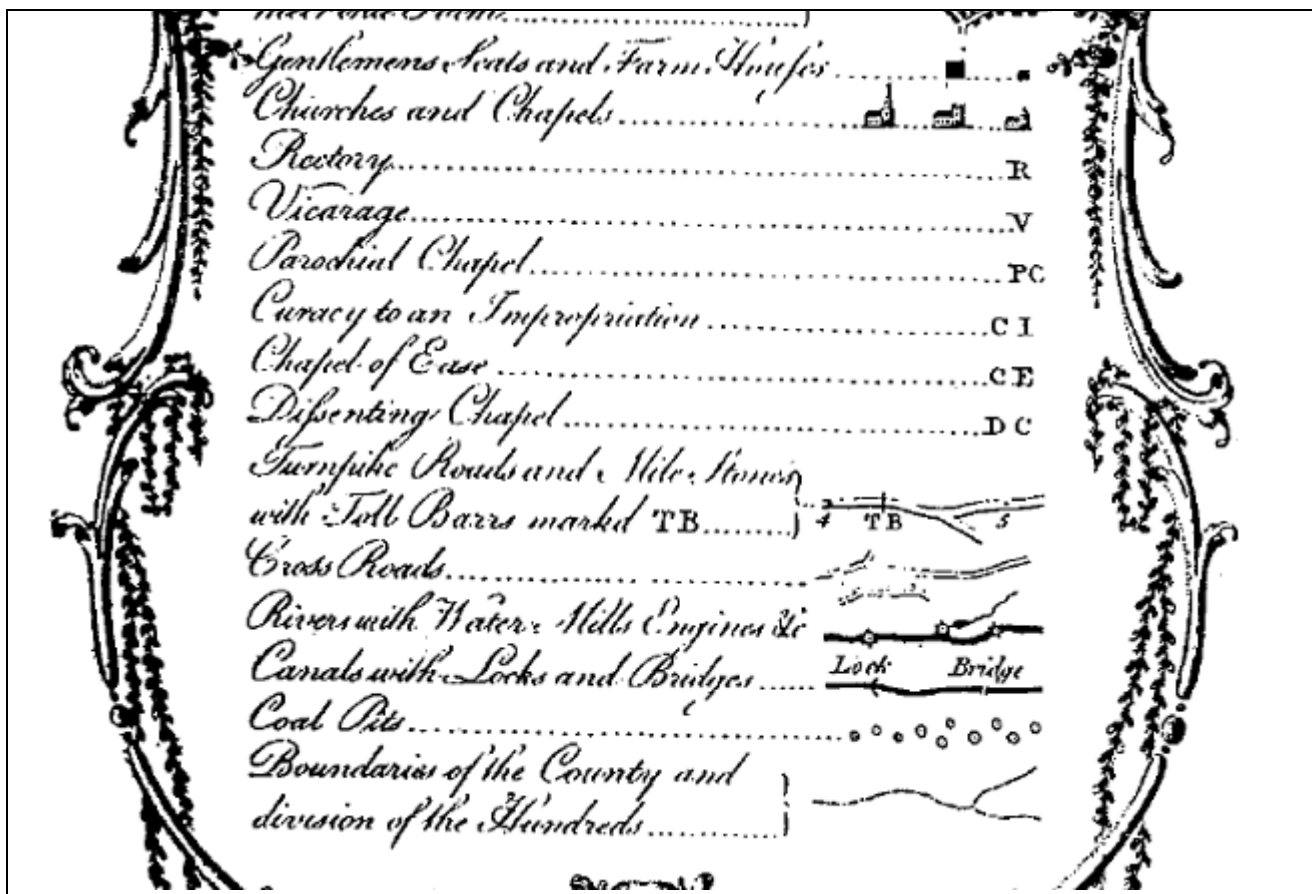 Gentlemens Seats and Farm Houses
Churches and Chapels
Rectory R
Vicarage V
Parochial Chapel PC
Curacy to an Impropriation C I
Chapel of Ease C E
Dissenting Chapel D C
Turnpike Roads and Mile Stones
with Toll Barrs markd TB 4 TB 5
Cross Roads
Rivers with Water Mills Engines &c
Canals with Locks and Bridges Lock Bridge
Coal Pits
Boundaries of the County and
division of the Hundreds